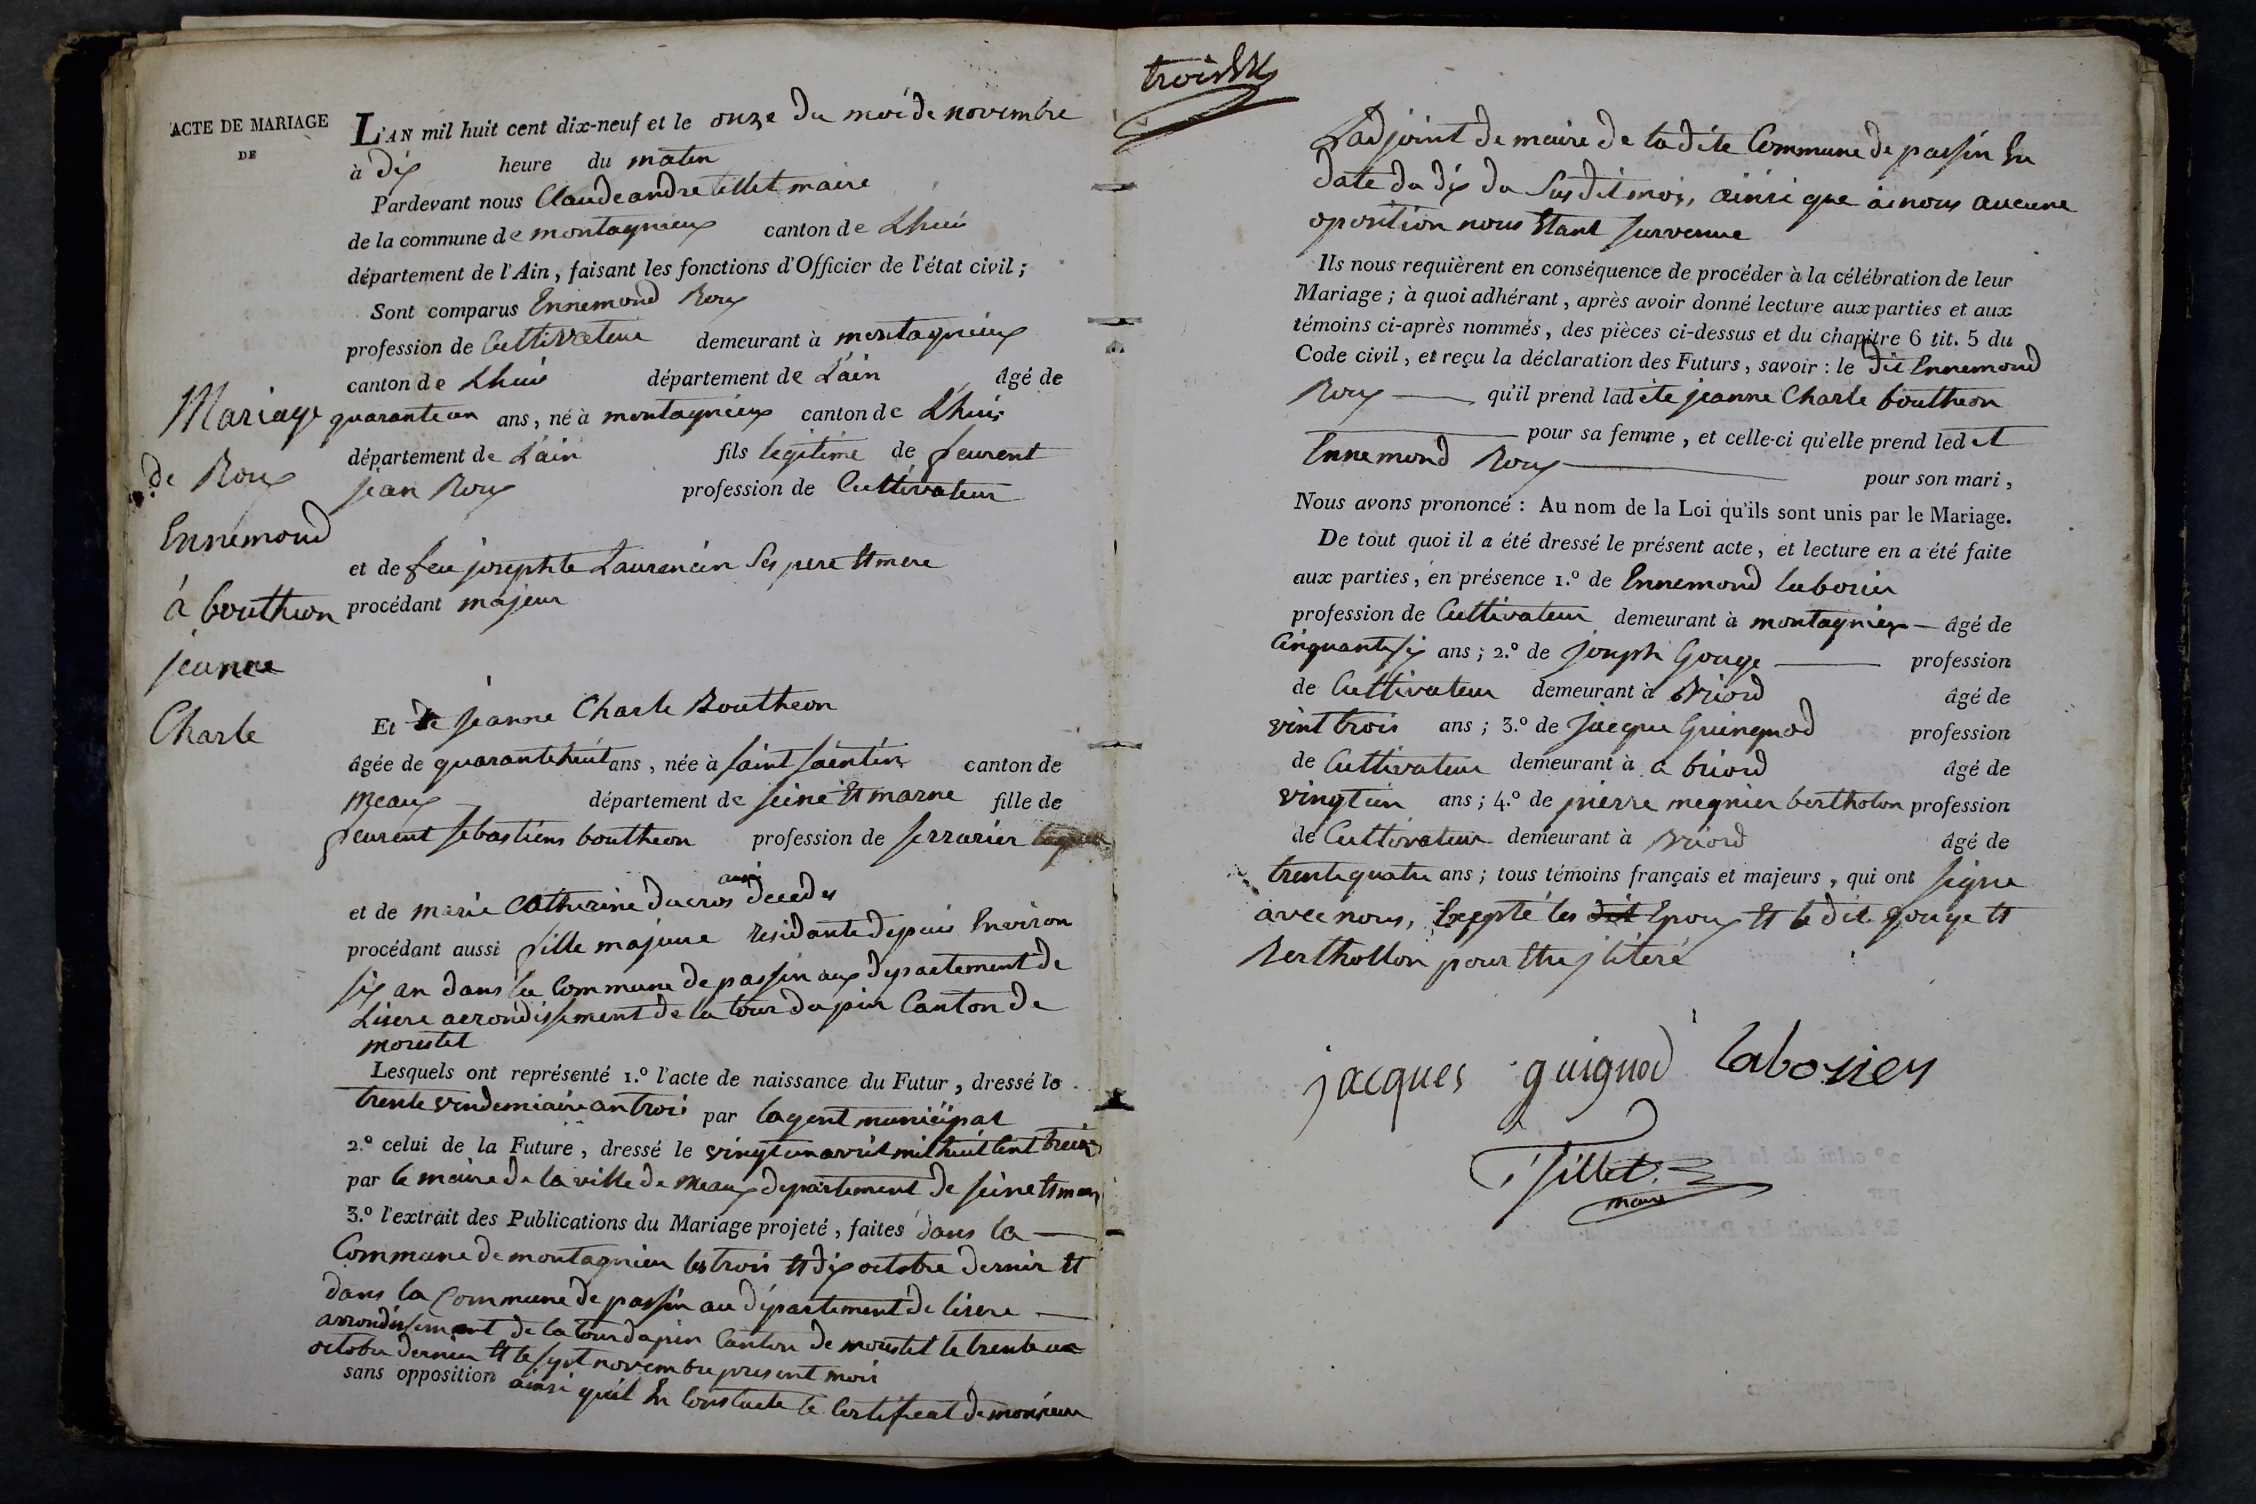 ACTE DE MARIAGE
DE
Mariage
de Roux
Ennemond
à boutheon
jeanne
Charle
L'AN mil huit cent dix-neuf et le onze du moi de novembre
à dix heure du matin
Pardevant nous Claude andre tillet maire
de la commune de montagnieux canton de Lhuis
département de l'Ain, faisant les fonctions d'Officier de l'état civil;
Sont comparus Ennemond Roux
profession de Cultivateur demeurant à montagnieux
canton de Lhuis département de L'ain âgé de
quarante un ans, né à montagnieux canton de Lhuis
département de L'ain fils legitime de feu rent
jean Roux profession de Cultivateur
et de feu josephte Laurencin Ses pere et mere
procédant majeur
Et de jeanne Charle Boutheon
âgée de quarante huit ans, née à saint saintin canton de
Meaux département de seine et marne fille de
feu rent sebastiens boutheon profession de serrurier
aussi
et de marie Catherine ducros decedes
procédant aussi fille majeure residante depuis Environ
six an dans la Commune de passin aux departement de
Lisere aerondissement de la tour du pin Canton de
morestel
Lesquels ont représenté 1.º l'acte de naissance du Futur, dressé le
trente vendemiaire an trois par lagent municipal
2.º celui de la Future, dressé le vingt un avril mil huit Cent treize
par le maire de la ville de Meaux departement de seine et mar
3.º l'extrait des Publications du Mariage projeté, faites dans la
Commune de montagnieu les trois et dix octobre dernir et
dans la Commune de passin au département de lisere
arrondissement de la tour dupin Canton de morestel le trente un
octobre dernier et le sept novembre present mois
sans opposition ainsi quil En Constacte le Certificat de monsieur
trois
L'adjoint de maire de ladite Commune de passin En
date du dix du Susdit mois, ainsi que à nous aucune
oposition nous Etant survenue
Ils nous requièrent en conséquence de procéder à la célébration de leur
Mariage; à quoi adhérant, après avoir donné lecture aux parties et aux
témoins ci-après nommés, des pièces ci-dessus et du chapitre 6 tit. 5 du
Code civil, et reçu la déclaration des Futurs, savoir: le dit Ennemond
Roux qu'il prend ladite jeanne Charle boutheon
pour sa femme, et celle-ci qu'elle prend ledit
Ennemond Roux
pour son mari,
Nous avons prononcé: Au nom de la Loi qu'ils sont unis par le Mariage.
De tout quoi il a été dressé le présent acte, et lecture en a été faite
aux parties, en présence 1.º de Ennemond laborier
profession de Cultivateur demeurant à montagnieu âgé de
Cinquante six ans; 2.º de joseph Gouge profession
de Cultivateur demeurant à Briord âgé de
vint trois ans; 3.º de jacque Guingnod profession
de Cultivateur demeurant à a briord âgé de
vingt un ans; 4.º de pierre megnier bertholon profession
de Cultivateur demeurant à Briord âgé de
trente quatre ans; tous témoins français et majeurs, qui ont signe
avec nous, Excepté les dit Epoux et le dit gouge et
Berthollon pour Etre jlitéré
jacques guignod laborier
Tillet
maire